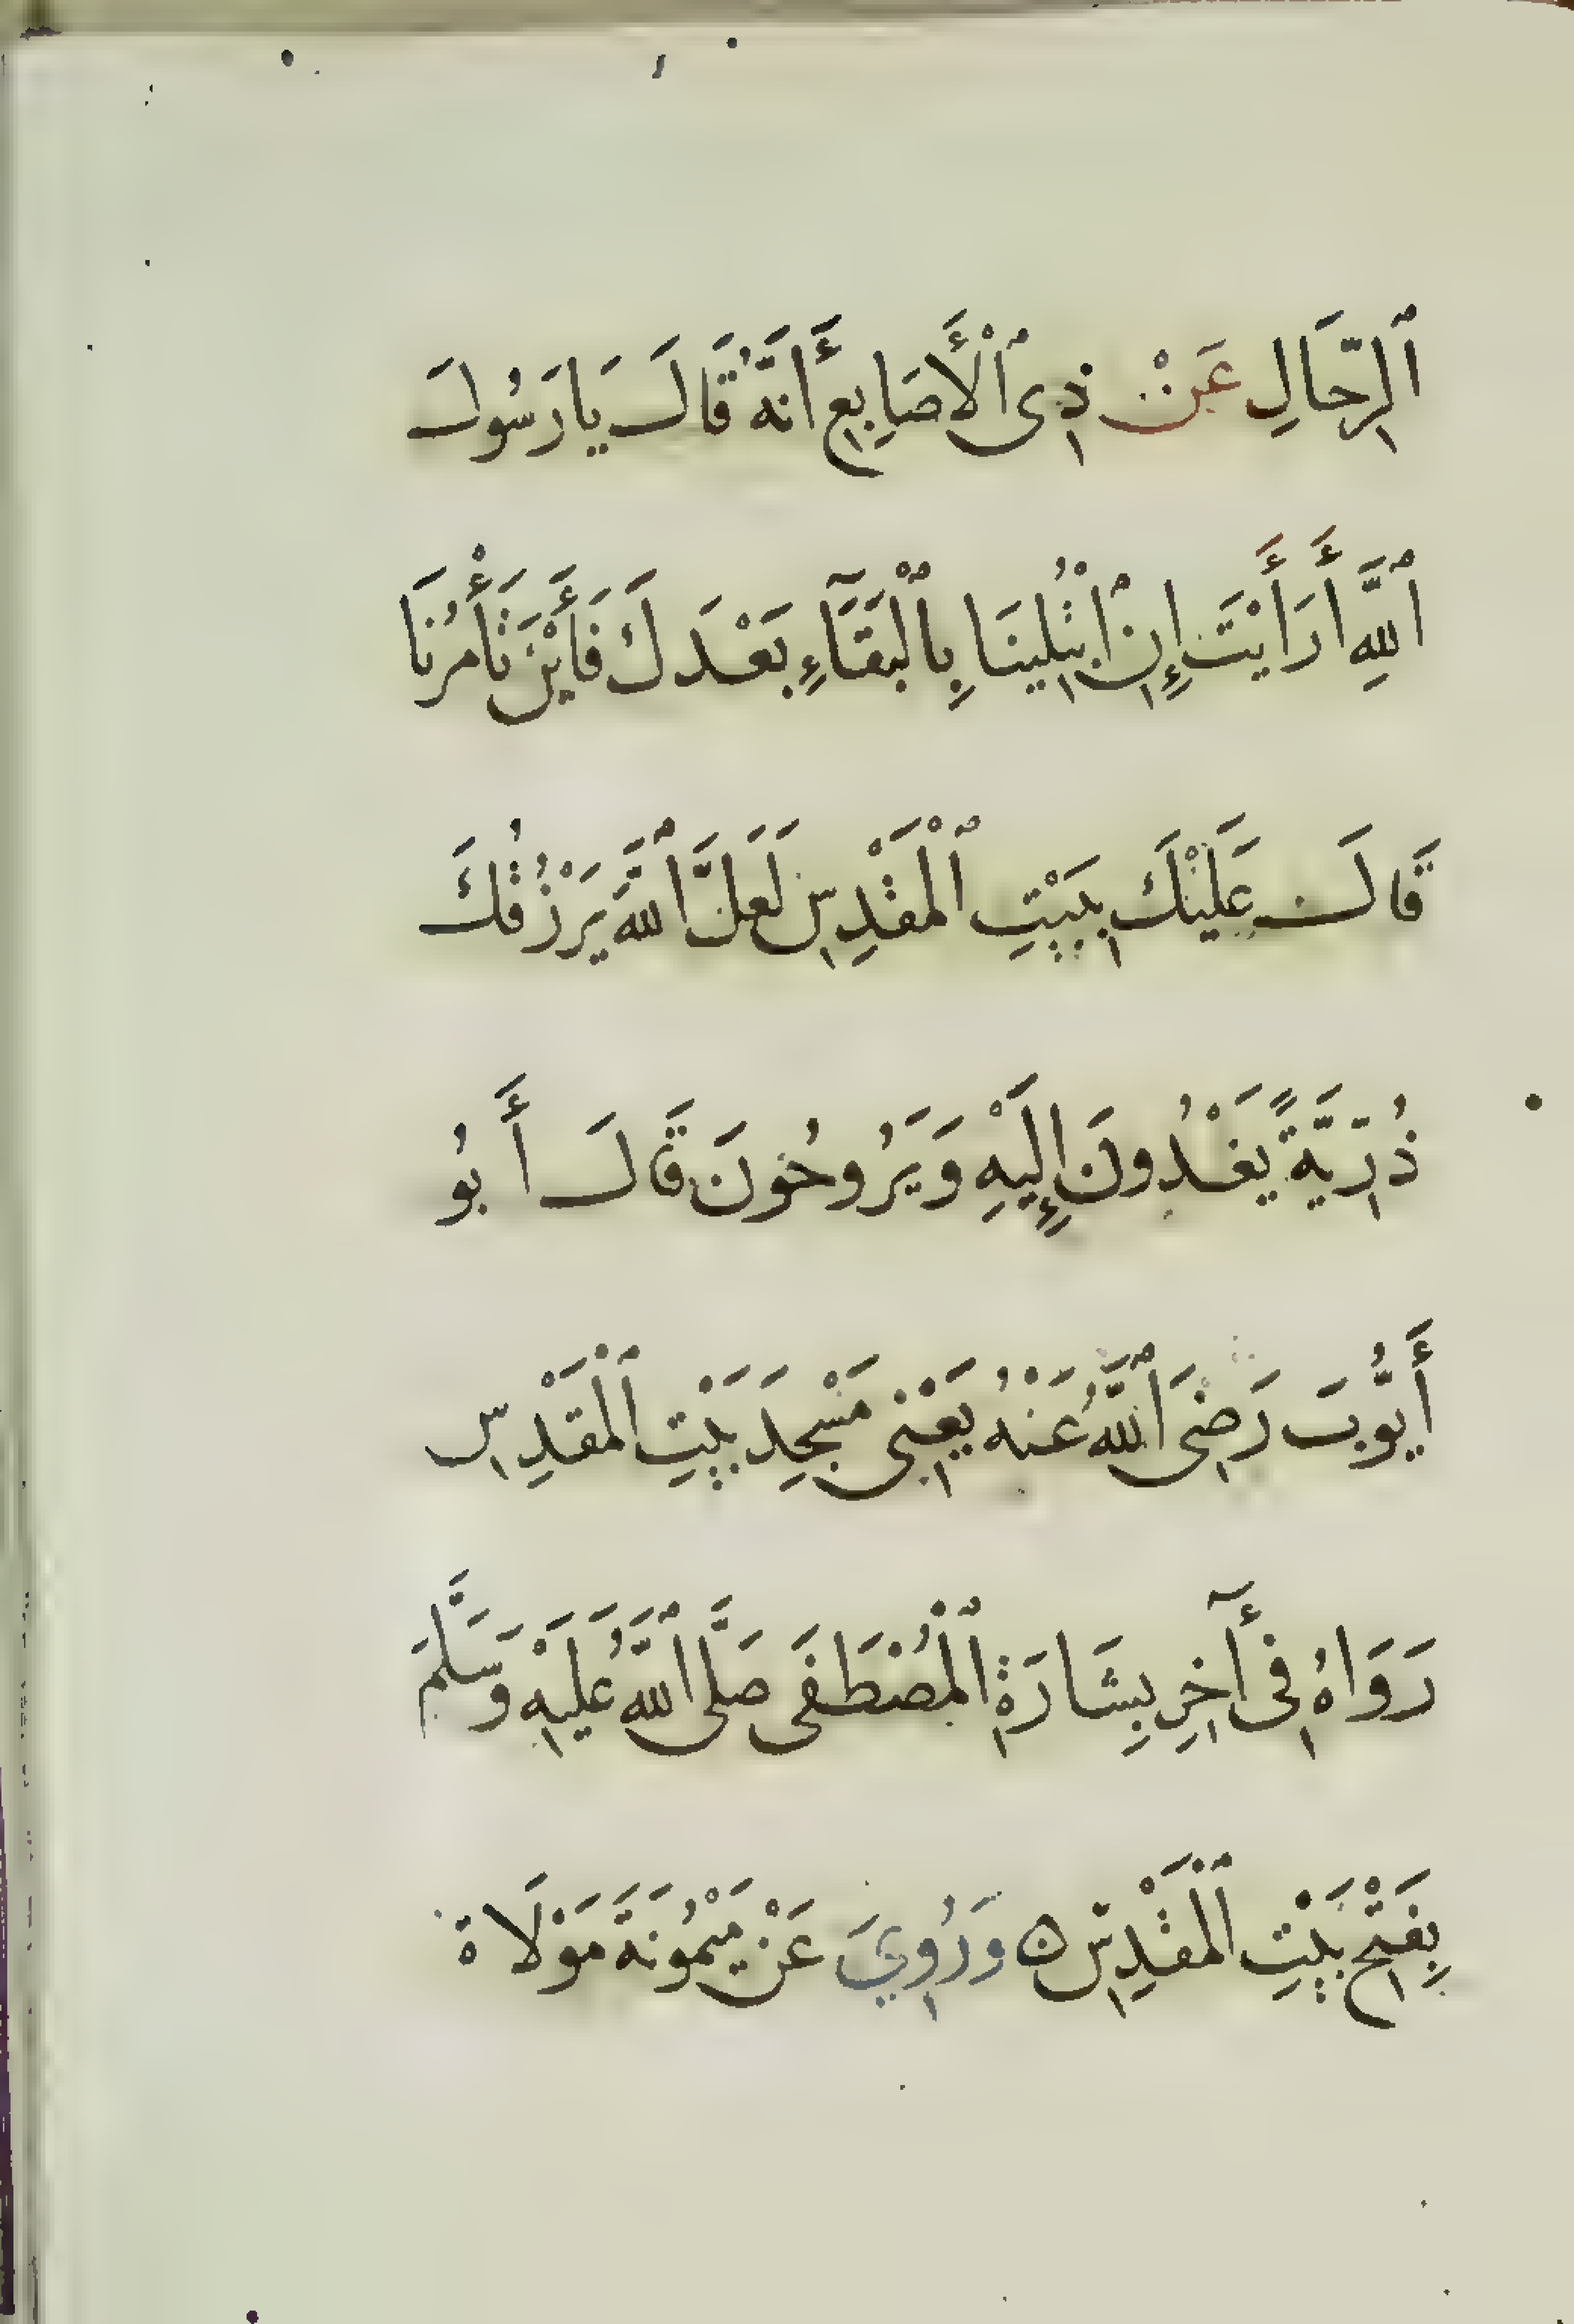 ٱلرِّحَالِ عَنْ ذِي ٱلْأَصَابِعِ أَنَّهُ قَالَ يَا رَسُولَ
ٱللَّهِ أَرَأَيْتَ إِنِ ٱبْتُلِينَا بِٱلْبَقَآءِ بَعْدَكَ فَأَيْنَ تَأْمُرُنَا
قَالَ عَلَيْكَ بِبَيْتِ ٱلْمَقْدِسِ لَعَلَّ ٱللَّهَ يَرْزُقُكَ
ذُرِّيَّةً يَغْدُونَ إِلَيْهِ وَيَرُوحُونَ قَالَ أَبُو
أَيُّوبَ رَضِيَ ٱللَّهُ عَنْهُ يَعْنِي مَسْجِدَ بَيْتِ ٱلْمَقْدِسِ
رَوَاهُ فِي آخِرِ بِشَارَةِ ٱلْمُصْطَفَى صَلَّى ٱللَّهُ عَلَيْهِ وَسَلَّمَ
بِفَتْحِ بَيْتِ ٱلْمَقْدِسِ ن وَرُوِيَ عَنْ مَيْمُونَةَ مَوْلَاةِ